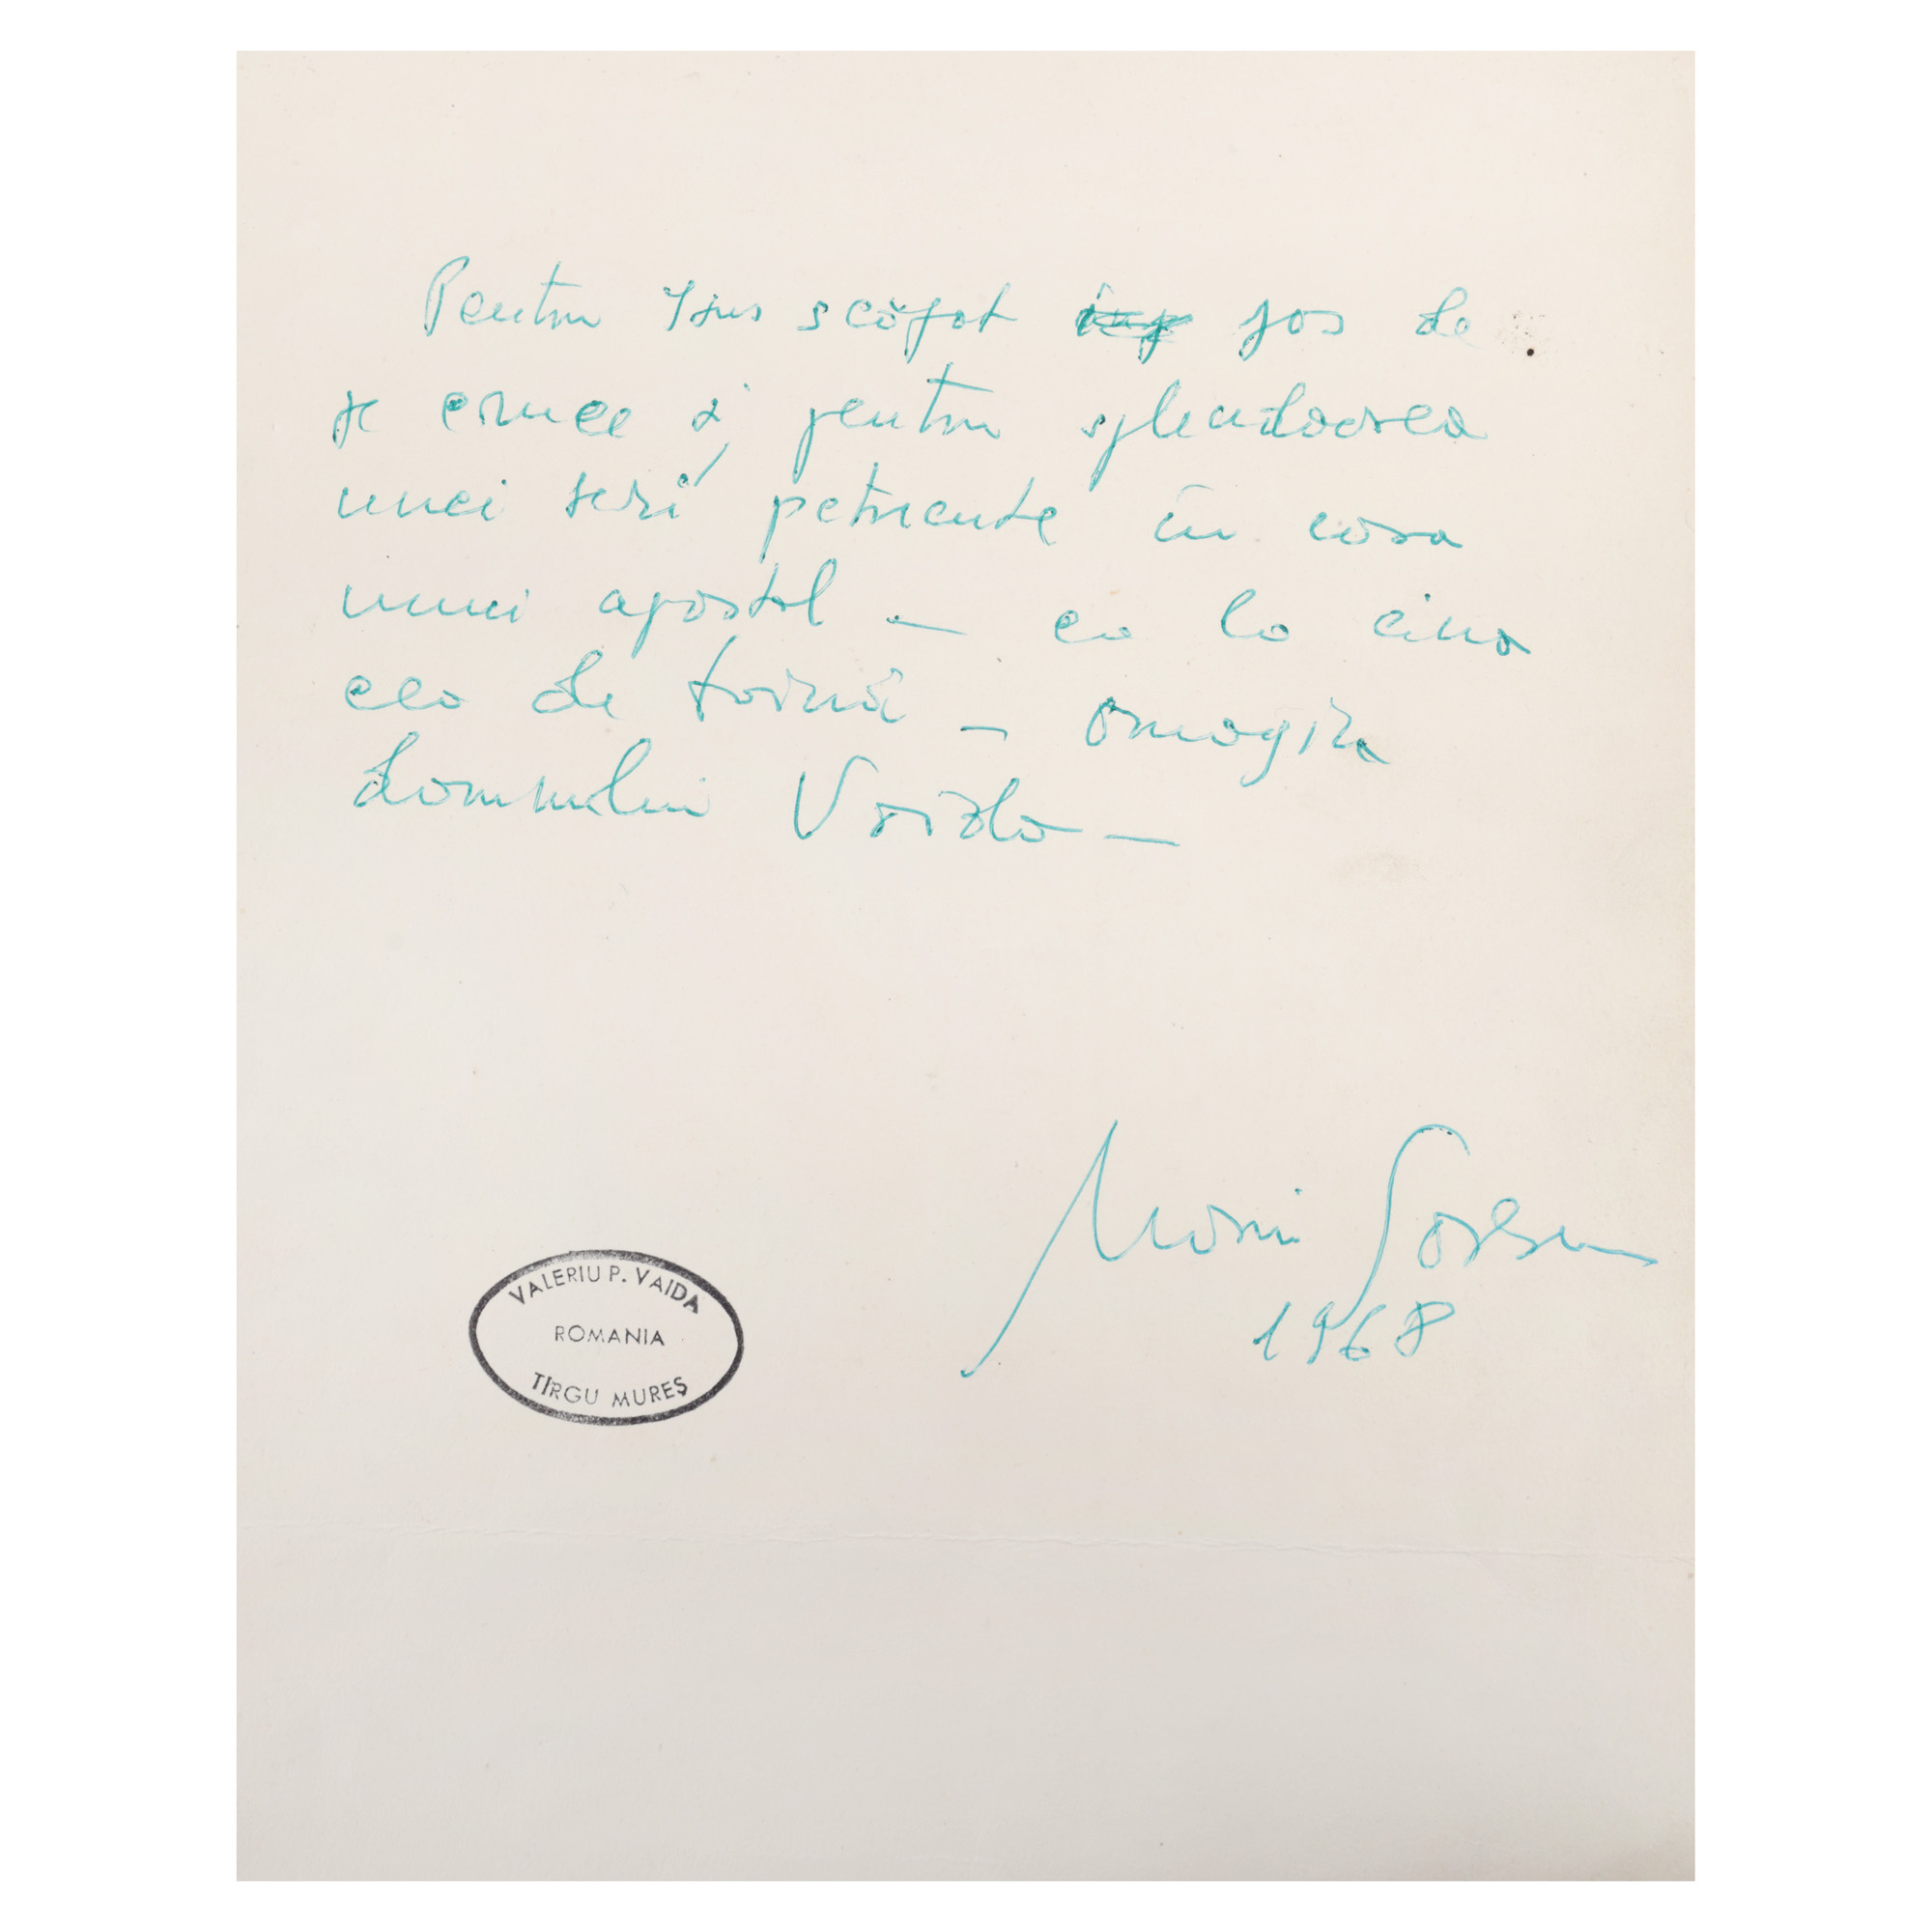 Pentru Isus scăpat jos de
pe cruce și pentru splendoarea
unei seri petrecute în casa
unui apostol – ca la cina
cea de taină – omagiu
domnului Vaida –
Marin Sorescu
1968
VALERIU P. VAIDA
ROMANIA
TÎRGU MUREȘ